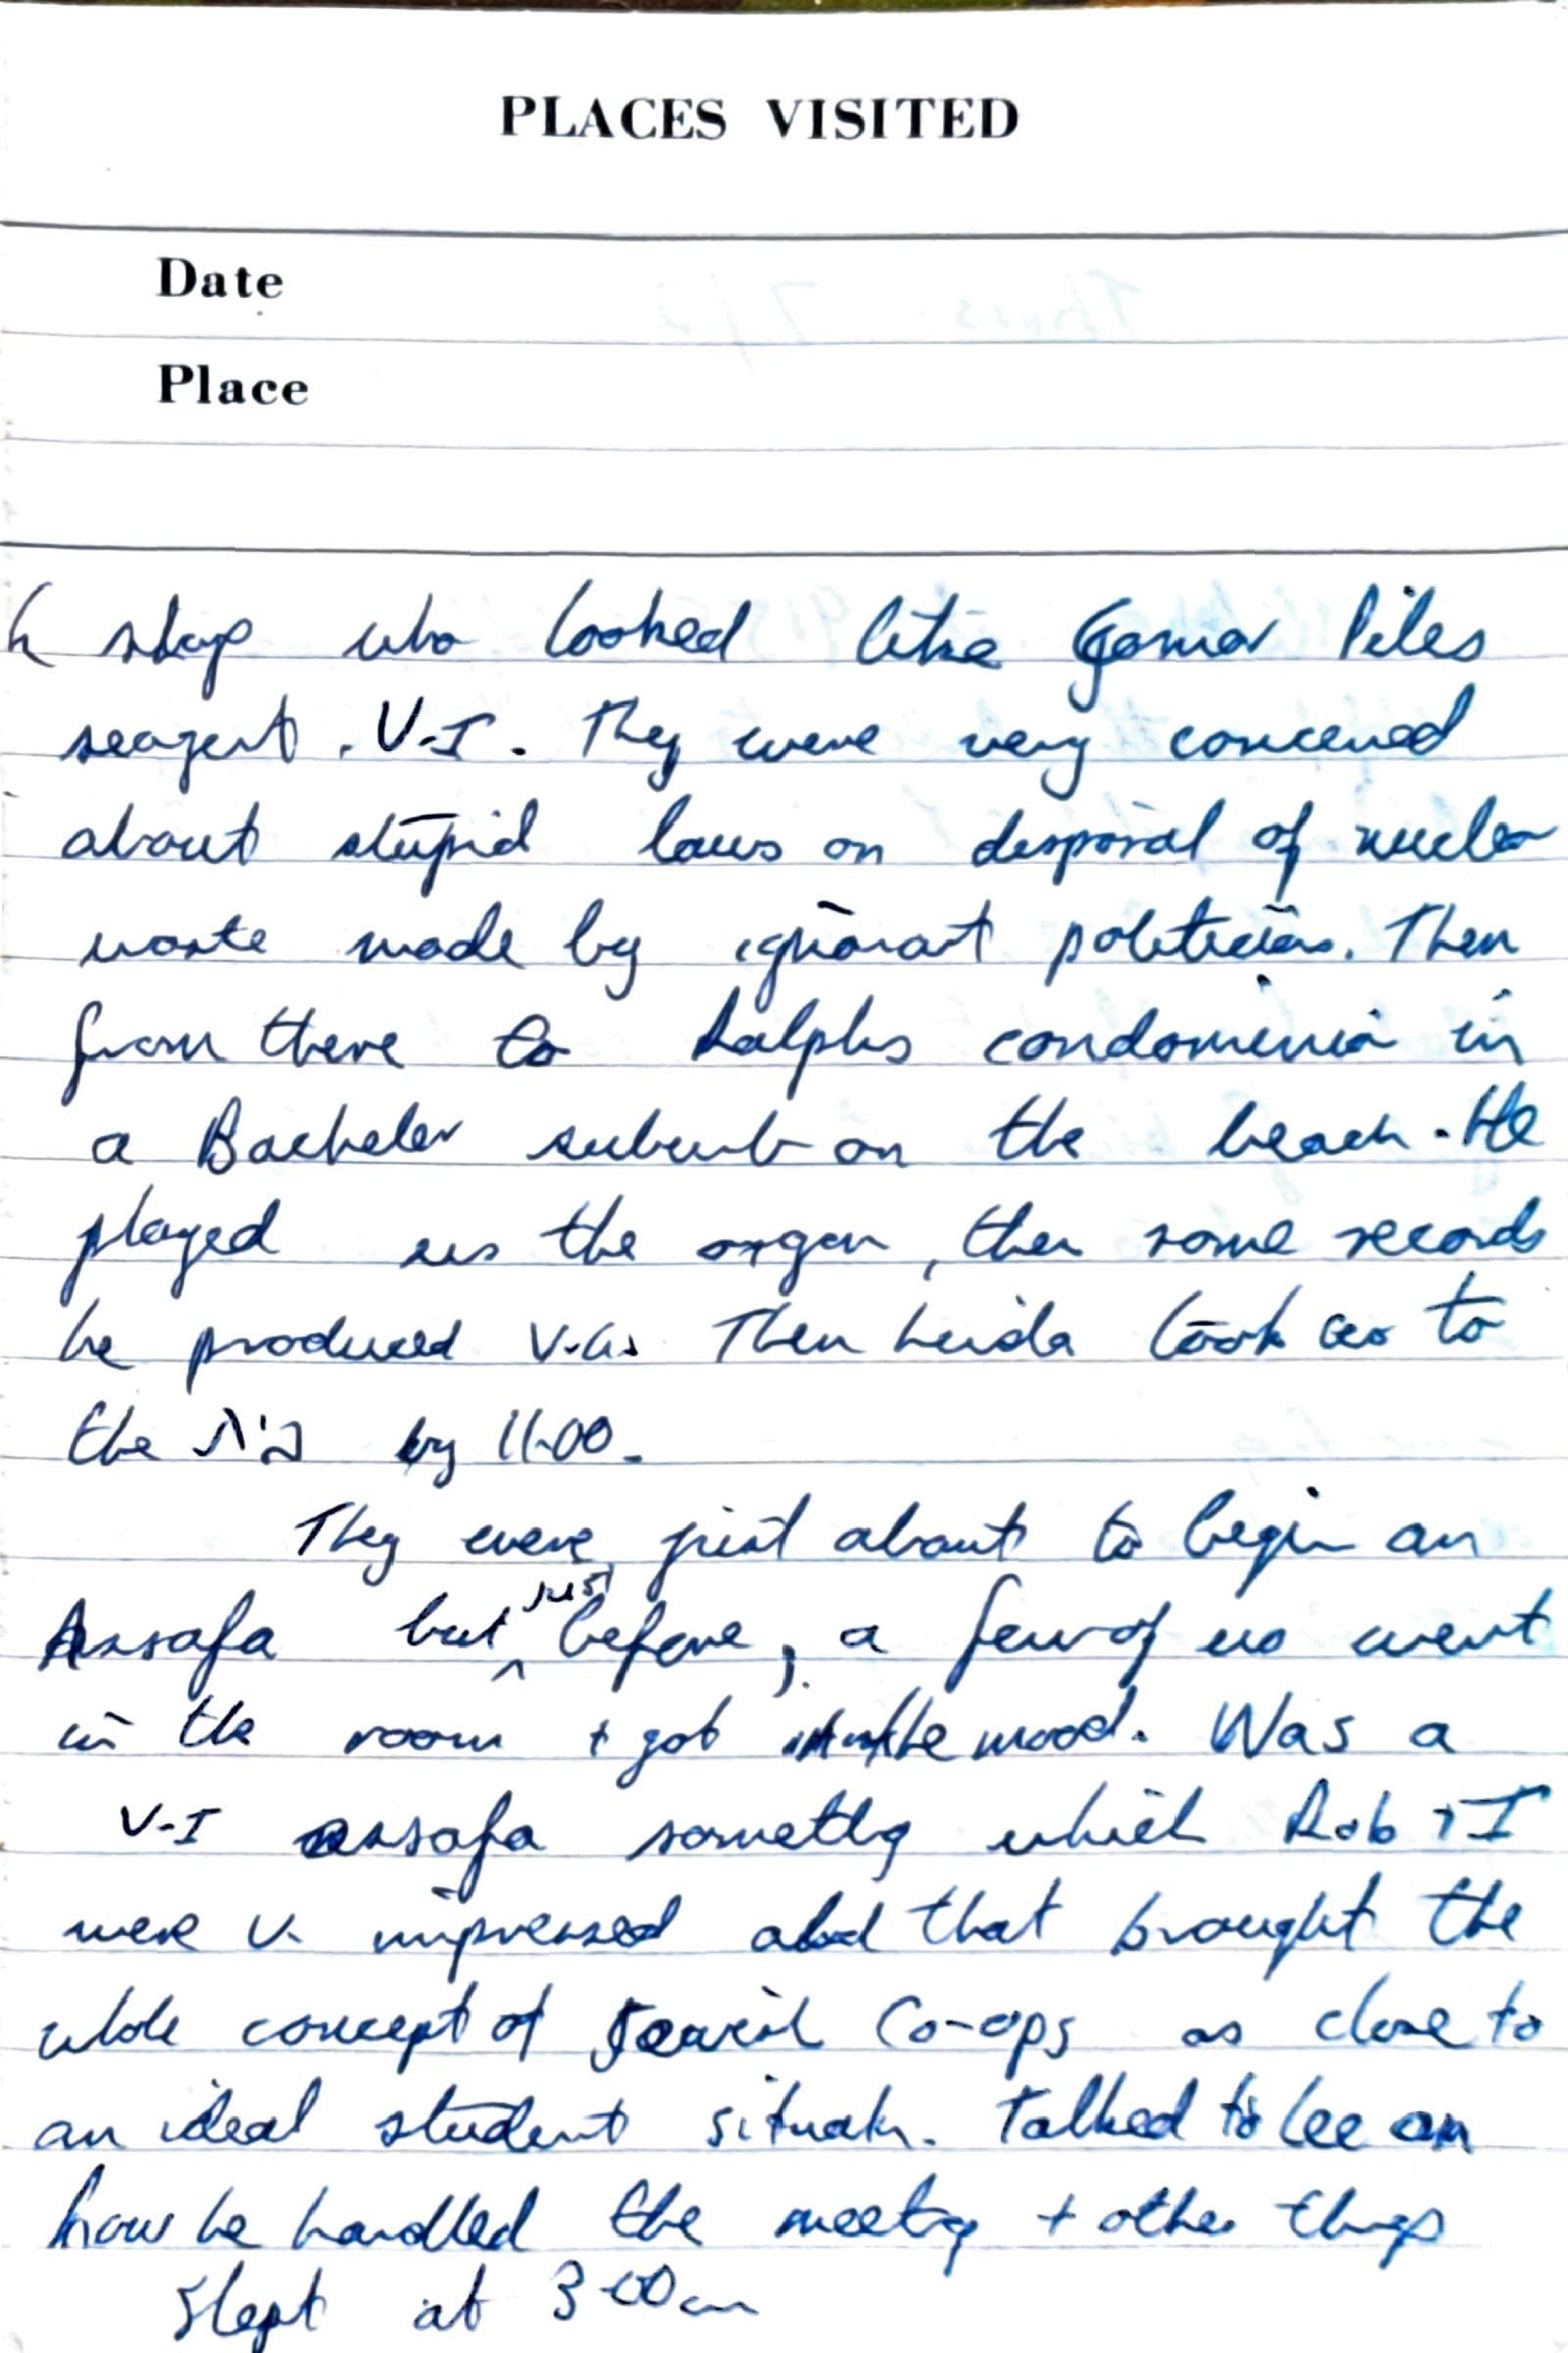 PLACES VISITED
Date
Place
shop who looked like Gomer Piles
seagent . V.I. They were very concerned
about stupid laws on disposal of nuclear
waste made by ignorant politicians. Then
from there to Ralphs condominia in
a Bachelor suburb on the beach. He
played us the organ, then some records
he produced V.G. Then Linda took us to
the בית by 11.00.
They were just about to begin an
Assafa but just before, a few of us went
in the room + got the mood. Was a
V-I assafa somethg which Rob + I
were v. impressed and that brought the
whole concept of Jewish Co-ops as close to
an ideal student situatn. Talked to Lee on
how he handled the meetg + other thgs
Slept at 3-00am